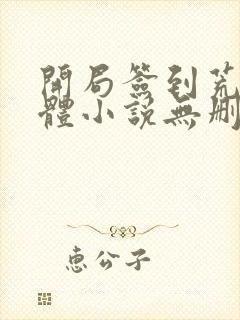 開局簽到荒
體小説無刪
恵公子